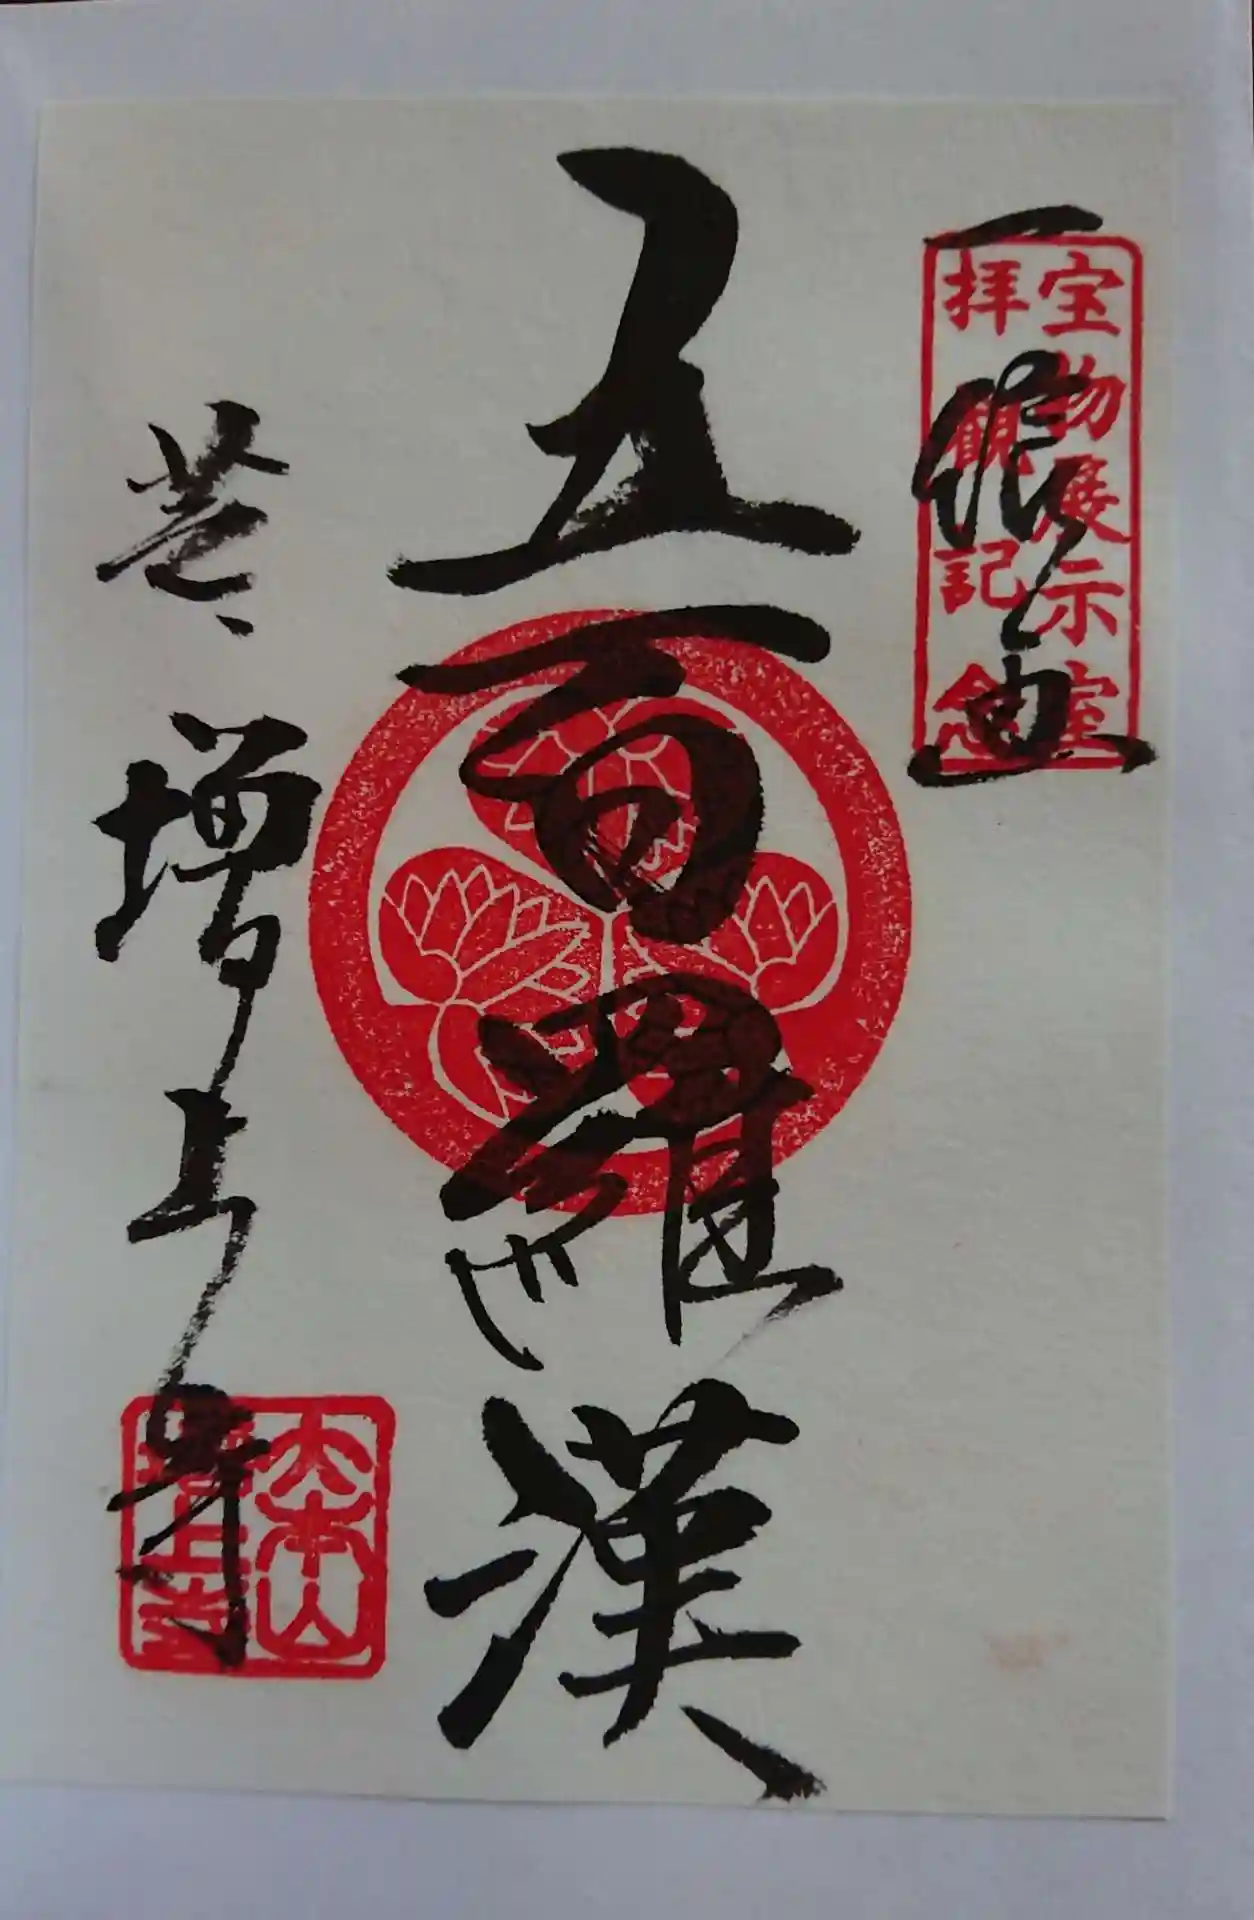 宝物展示室
拝観記念
五百羅漢
芝 増上寺
大本山
増上寺